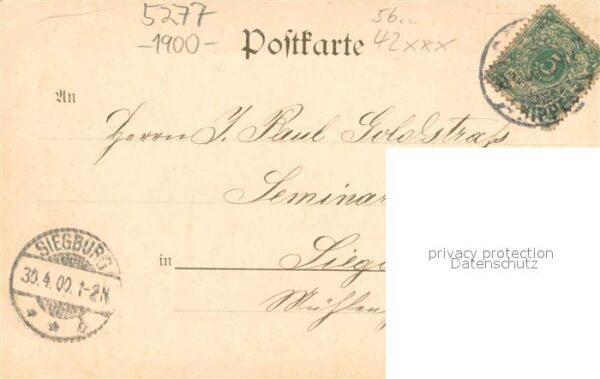 5277
-1900-
42xxx
Postkarte
5
An
Herrn J. Paul Goldstraß
Seminar
in Sieg
Mühlen
SIEGBURG
30.4.00.1-2N.
* * b
privacy protection
Datenschutz